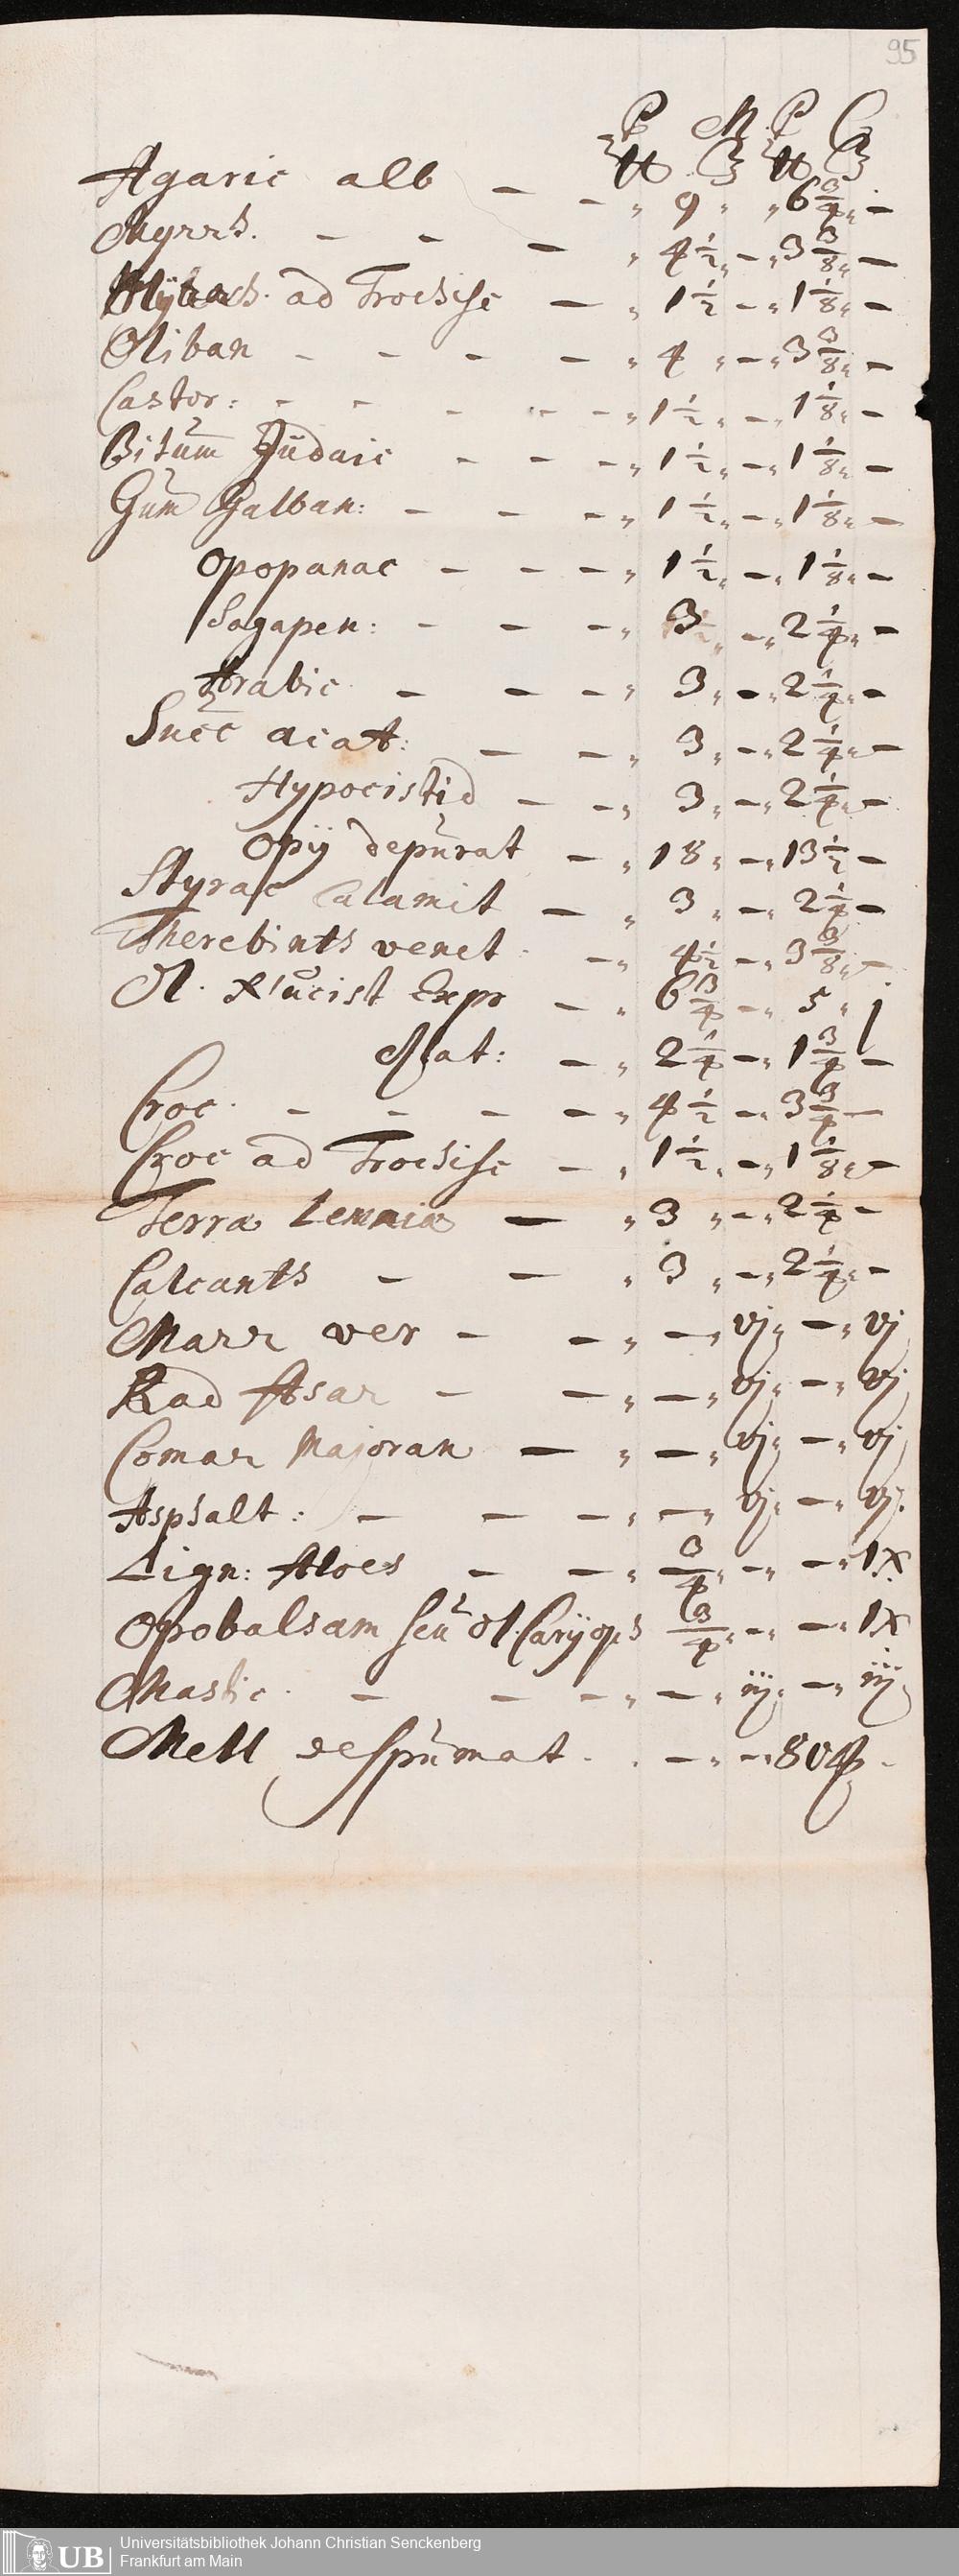 95
P M P C
℔ ℥ ℔ ℥
Agaric alb — — „ 9 „ „ 6 3/4 „ —
Myrrh. — — — „ 4 1/2 „ — „ 3 3/8 „ —
ad Trochisc — „ 1 1/2 — „ 1 1/8 „ —
Oliban — — — — „ 4 „ — „ 3 3/8 „ —
Castor: — — — — — „ 1 1/2 „ — „ 1 1/8 „ —
Bitum Judaic — — — „ 1 1/2 „ — „ 1 1/8 „ —
Gum Galban: — — — „ 1 1/2 „ — „ 1 1/8 „ —
Opopanac — — — „ 1 1/2 „ — „ 1 1/8 „ —
Sagapen: — — — „ 3 „ — „ 2 1/4 „ —
Arabic — — — „ 3 „ — „ 2 1/4 „ —
Succ acat: — — „ 3 „ — „ 2 1/4 „ —
Hypocistid — — „ 3 „ — „ 2 1/4 „ —
Opij depurat — „ 18 „ — „ 13 1/2 —
Styrac Calamit — „ 3 „ — „ 2 1/4 —
Therebinth venet. — „ 4 1/2 — „ 3 3/8 „ —
Ol. Nucist Expr — „ 6 3/4 — „ 5 „ j
stat: — „ 2 1/4 — „ 1 3/4 —
Croc. — — — — „ 4 1/2 — „ 3 3/4 —
Croc ad Trochisc — „ 1 1/2 „ — „ 1 1/8 „ —
Terra Lemnia — „ 3 „ — „ 2 1/4 —
Calcanth — — „ 3 „ — „ 2 1/4 „ —
Marr ver — — „ — „ vj „ — „ vj
Rad Asar — — „ — „ vj „ — „ vj
Comar Majoran — „ — „ vj „ — „ vj
Asphalt: — — — „ — „ vj „ — „ vj.
Lign: Aloes — — „ 3/4 „ — „ — „ 1X
Opobalsam seu Ol. Caryoph 3/4 „ — „ — „ 1X
Mastic. — — — „ — „ iij „ — „ iij
Mell despumat . . — „ — „ 8 -
Universitätsbibliothek Johann Christian Senckenberg
Frankfurt am Main
UB